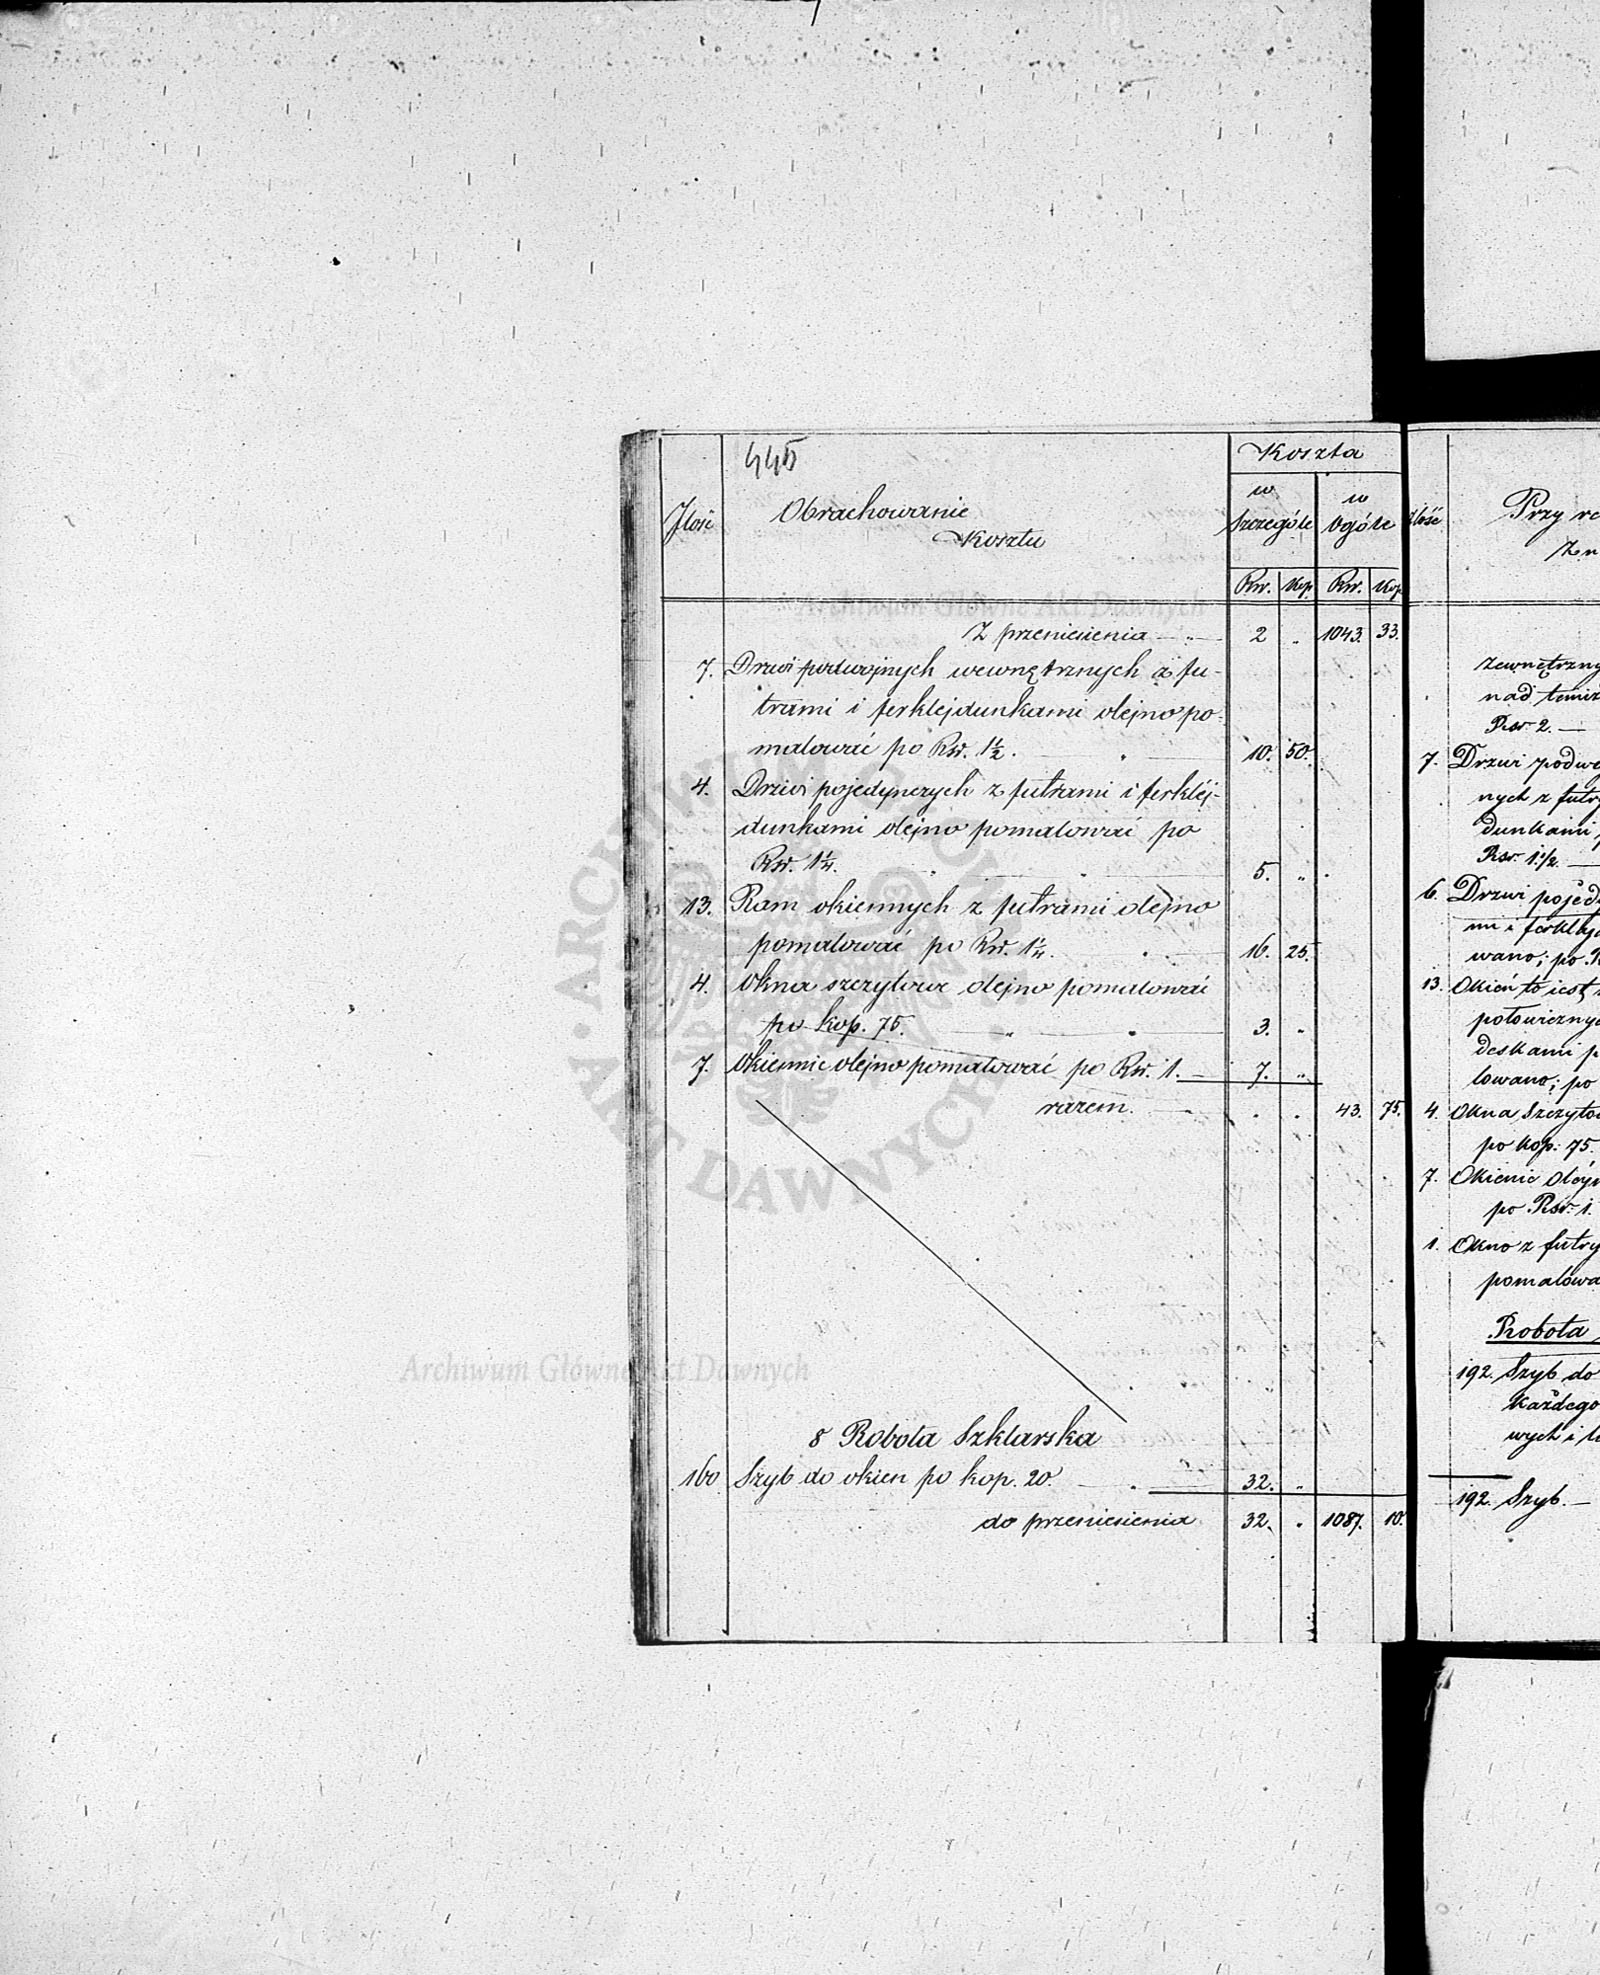 445
Koszta
Ilość
Obrachowanie
Kosztu
w szczególe
w ogóle
Rsr. Kop. Rsr. Kop.
Z przeniesienia — „ — 2 „ 1043. 33.
7. Drzwi podwójnych wewnętrznych z fu-
trami i ferklejdunkami olejno po-
malować po Rsr. 1½. „ 10. 50.
4. Drzwi pojedynczych z futrami i ferklej-
dunkami olejno pomalować po
Rsr. 1¼. „ „ 5. „
13. Ram okiennych z futrami olejno
pomalować po Rsr. 1¼. „ 16. 25.
4. Okna szczytowe olejno pomalować
po kop. 75. — „ — „ 3. „
7. Okiennic olejno pomalować po Rsr. 1. — 7. „
razem. — . . 43. 75.
8 Robota Szklarska
160 Szyb do okien po kop. 20. — „ 32. „
do przeniesienia 32. „ 1087. 10.
Ilość
Przy re
zewnętrzny
nad temiż
Rsr 2. —
7. Drzwi podwo
nych z futry
dunkami
Rsr. 1.1/2. —
6. Drzwi pojed
mi i ferklej
wano; po R
13. Okień to iest
połowicznyc
deskami p
lowano; po
4. Okna Szczyto
po kop: 75.
7. Okienic oley
po Rsr. 1.
1. Okno z futry
pomalowa
Robota
192. Szyb do
każdego
wych i
192. Szyb. —
Archiwum Główne Akt Dawnych
Archiwum Główne Akt Dawnych
ARCHIWUM GŁÓWNE AKT DAWNYCH